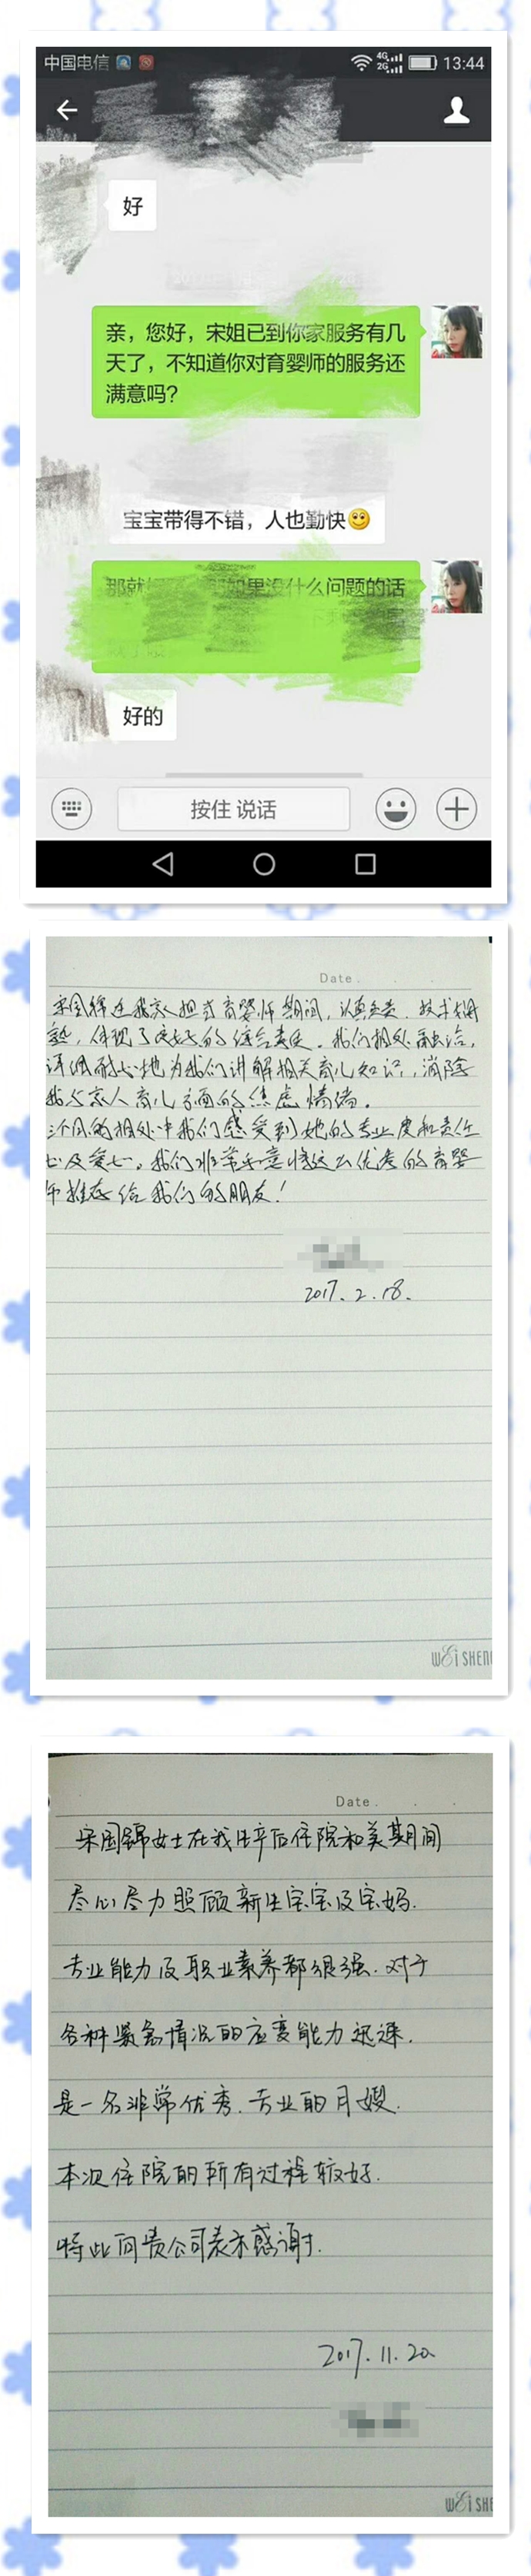 中国电信
4G
2G
13:44
好
亲，您好，宋姐已到你家服务有几
天了，不知道你对育婴师的服务还
满意吗？
宝宝带得不错，人也勤快
那就 里没什么问题的话
好的
按住 说话
Date . . .
宋国锦在我家担当育婴师期间，认真负责，技术娴
熟，体现了良好的综合素质。我们相处融洽，
详细耐心地为我们讲解相关育儿知识，消除
我与家人育儿方面的焦虑情绪。
三个月的相处中我们感受到她的专业度和责任
心及爱心。我们非常乐意将这么优秀的育婴
师推荐给我们的朋友！
2017.2.18.
WEiSHEN
Date . . .
宋国锦女士在我生产后住院和美期间
尽心尽力照顾新生宝宝及宝妈.
专业能力及职业素养都很强.对于
各种紧急情况的应变能力迅速.
是一名非常优秀.专业的月嫂.
本次住院的所有过程较好.
特此向贵公司表示感谢.
2017.11.20
WEiSHE